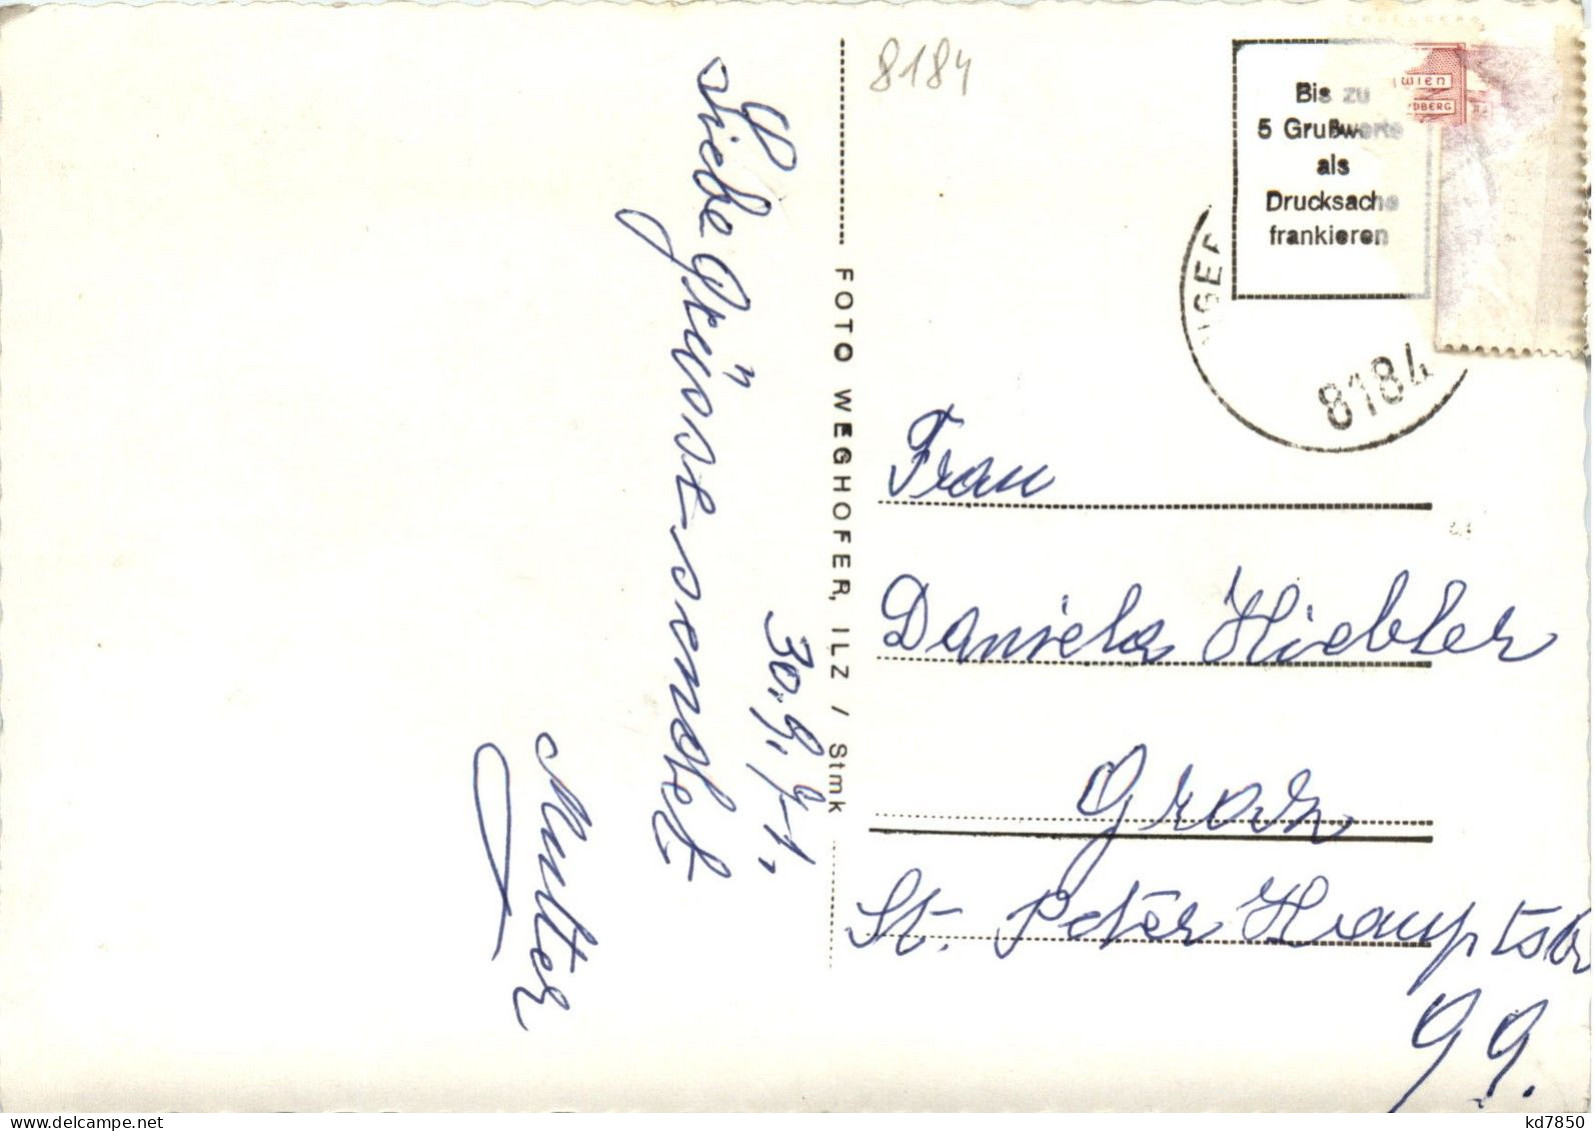 8184
Bis zu
5 Grußworte
als
Drucksache
frankieren
WIEN
DBERG
NGER
8184
Liebe Grüsse sendet
30.9.71,
Mutter
FOTO WEGHOFER, ILZ / Stmk
Frau
Daniela Hiebler
Graz
St. Peter Hauptstr
99.
delcampe.net
kd7850